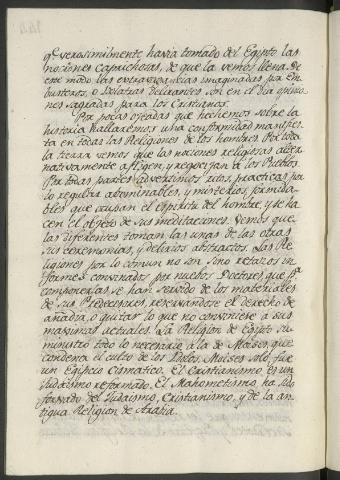 qe. verosimilmente havia tomado del Egypto las
nociones caprichosas, de que la vemos llena. De
este modo las extravagancias imaginadas por em
busteros, o Idolatras delirantes son en el dia opinio
nes sagradas para los Cristianos.
Por pocas ojeadas que hechemos sobre la
historia hallaremos una conformidad manifies
ta en todas las Religiones de los hombres. Por toda
la tierra vemos que las nociones religiosas alter
nativamente afligen, y regocijan a los Pueblos.
Por todas partes advertimos ritos, practicas por
lo regular abominables, y misterios formida-
bles que ocupan el espiritu del hombre, y se ha
cen el objeto de sus meditaciones. Vemos que
las diferentes toman las unas de las otras
sus ceremonias, y delirios abstractos. Las Re
ligiones por lo comun no son sino retazos in
formes convinados por nuebos Doctores, que pa.
componerlas se han servido de los materiales
de sus Predecesores, reservandose el derecho de
añadir, o quitar lo que no conviniese a sus
maximas actuales. La Religion de Egipto su-
ministró todo lo necesario a la de Moises, que
condenó el culto de los Idolos. Moises solo fue
un Egipcio Cismatico. El Cristianismo, es un
Judaismo reformado. El Mahometismo ha sido
formado del Judaismo, Cristianismo, y de la an
tigua Religion de Arabia.